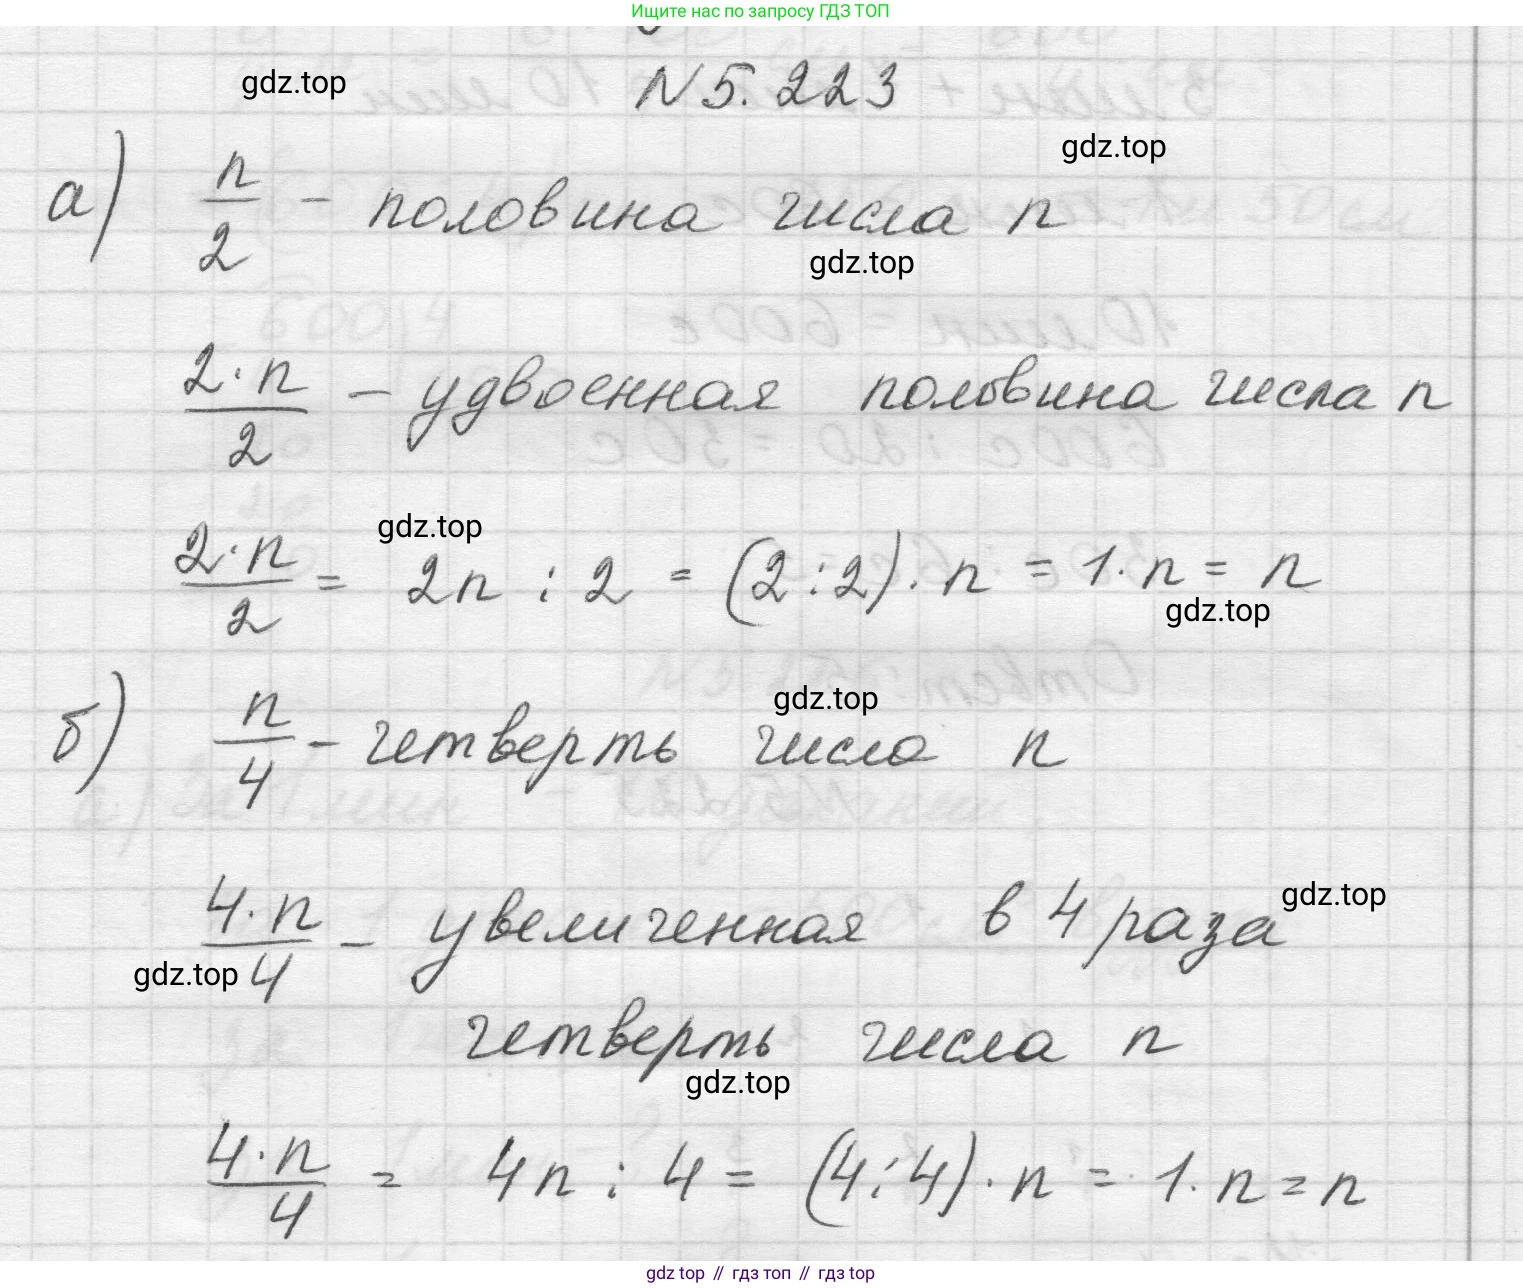 Ищите нас по запросу ГДЗ ТОП
gdz.top
N 5. 223
gdz.top
а) n/2 - половина числа n
gdz.top
2·n/2 - удвоенная половина числа n
gdz.top
2·n/2 = 2n : 2 = (2:2)·n = 1·n = n
gdz.top
gdz.top
б) n/4 - четверть числа n
gdz.top
4·n/4 - увеличенная в 4 раза
gdz.top
четверть числа n
gdz.top
4·n/4 = 4n : 4 = (4:4)·n = 1·n = n
gdz top // гдз топ // гдз top